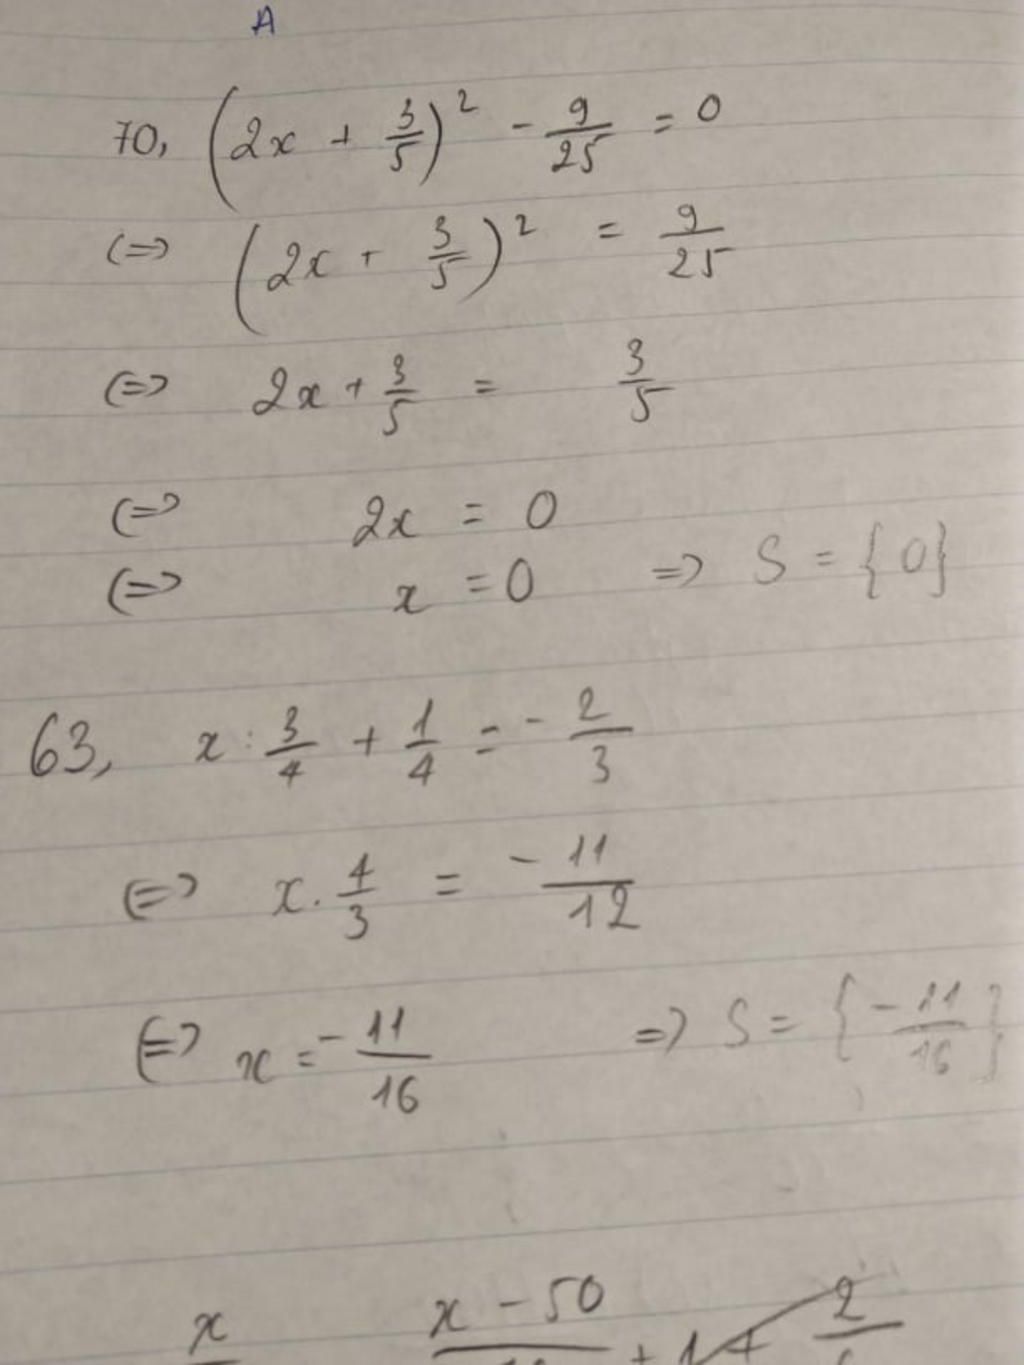 A
70, (2x + 3/5)² - 9/25 = 0
(=> (2x + 3/5)² = 9/25
(=> 2x + 3/5 = 3/5
(=> 2x = 0
(=> x = 0 => S = {0}
63, x : 3/4 + 1/4 = - 2/3
(=> x . 4/3 = - 11/12
(=> x = - 11/16 => S = {- 11/16}
x x - 50 + 1 + 2